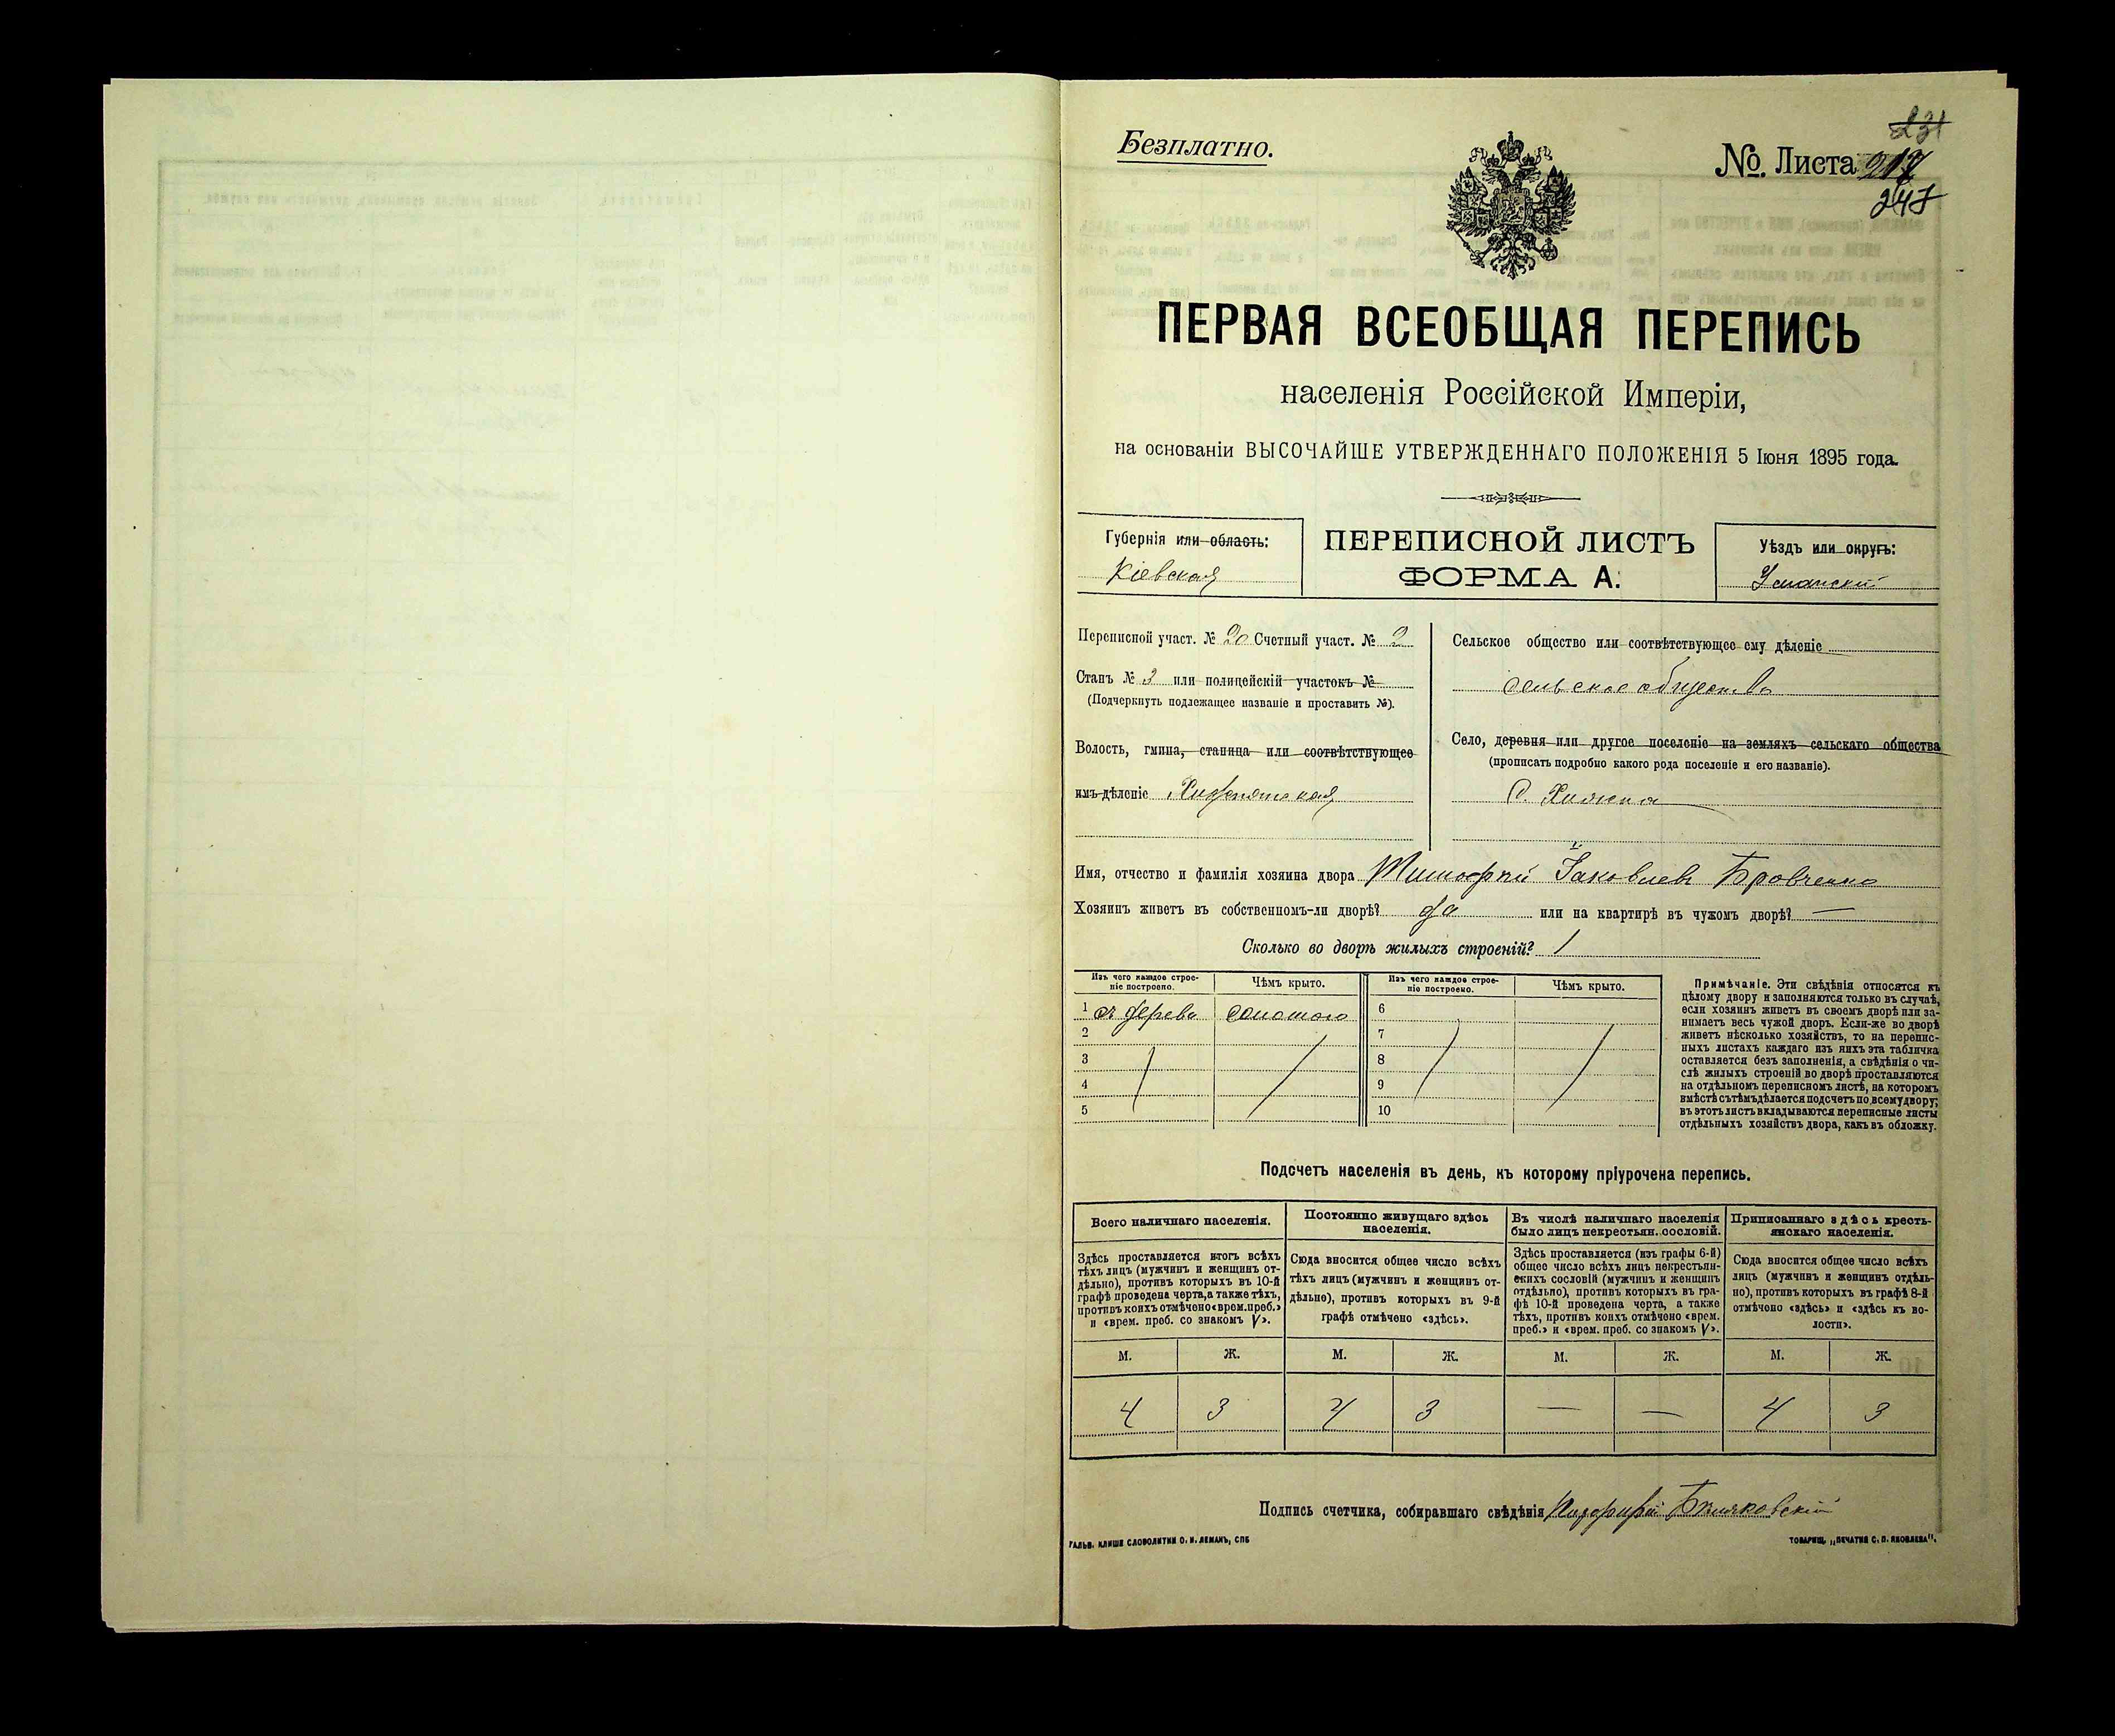 Безплатно.
231
№. Листа 217
247
ПЕРВАЯ ВСЕОБЩАЯ ПЕРЕПИСЬ
населенія Россійской Имперіи,
на основаніи ВЫСОЧАЙШЕ УТВЕРЖДЕННАГО ПОЛОЖЕНІЯ 5 Іюня 1895 года.
Губернія или область:
Кіевская
ПЕРЕПИСНОЙ ЛИСТЪ
ФОРМА А.
Уѣздъ или округъ:
Уманскій
Переписной участ. № 20 Счетный участ. № 2
Станъ № 3 или полицейскій участокъ №
(Подчеркнуть подлежащее названіе и проставить №).
Волость, гмина, станица или соотвѣтствующее
имъ дѣленіе
Сельское общество или соотвѣтствующее ему дѣленіе
сельское общество
Село, деревня или другое поселеніе на земляхъ сельскаго общества
(прописать подробно какого рода поселеніе и его названіе).
с.
Имя, отчество и фамилія хозяина двора Тимофей Яковлевъ Бровченко
Хозяинъ живетъ въ собственномъ-ли дворѣ? да или на квартирѣ въ чужомъ дворѣ? —
Сколько во дворѣ жилыхъ строеній? 1
Изъ чего каждое строе-
ніе построено.
Чѣмъ крыто.
Изъ чего каждое строе-
ніе построено.
Чѣмъ крыто.
1 съ дерева соломою 6
2 7
3 8
4 9
5 10
Примѣчаніе. Эти свѣдѣнія относятся къ
цѣлому двору и заполняются только въ случаѣ,
если хозяинъ живетъ въ своемъ дворѣ или за-
нимаетъ весь чужой дворъ. Если-же во дворѣ
живетъ нѣсколько хозяйствъ, то на перепис-
ныхъ листахъ каждаго изъ нихъ эта табличка
оставляется безъ заполненія, а свѣдѣнія о чи-
слѣ жилыхъ строеній во дворѣ проставляются
на отдѣльномъ переписномъ листѣ, на которомъ
вмѣстѣ съ тѣмъ дѣлается подсчетъ по всему двору;
въ этотъ листъ вкладываются переписные листы
отдѣльныхъ хозяйствъ двора, какъ въ обложку.
Подсчетъ населенія въ день, къ которому пріурочена перепись.
Всего наличнаго населенія.
Здѣсь проставляется итогъ всѣхъ
тѣхъ лицъ (мужчинъ и женщинъ от-
дѣльно), противъ которыхъ въ 10-й
графѣ проведена черта, а также тѣхъ,
противъ коихъ отмѣчено «врем. преб.»
и «врем. преб. со знакомъ V».
Постоянно живущаго здѣсь
населенія.
Сюда вносится общее число всѣхъ
тѣхъ лицъ (мужчинъ и женщинъ от-
дѣльно), противъ которыхъ въ 9-й
графѣ отмѣчено «здѣсь».
Въ числѣ наличнаго населенія
было лицъ некрестьян. сословій.
Здѣсь проставляется (изъ графы 6-й)
общее число всѣхъ лицъ некрестьян-
скихъ сословій (мужчинъ и женщинъ
отдѣльно), противъ которыхъ въ гра-
фѣ 10-й проведена черта, а также
тѣхъ, противъ коихъ отмѣчено «врем.
преб.» и «врем. преб. со знакомъ V».
Приписаннаго здѣсь кресть-
янскаго населенія.
Сюда вносится общее число всѣхъ
лицъ (мужчинъ и женщинъ отдѣль-
но), противъ которыхъ въ графѣ 8-й
отмѣчено «здѣсь» и «здѣсь къ во-
лости».
М. Ж. М. Ж. М. Ж. М. Ж.
4 3 4 3 — — 4 3
Подпись счетчика, собиравшаго свѣдѣнія
ГАЛЬВ. КЛИШЕ СЛОВОЛИТНИ О. И. ЛЕМАНЪ, СПБ
ТОВАРИЩ. „ПЕЧАТНЯ С. П. ЯКОВЛЕВА".